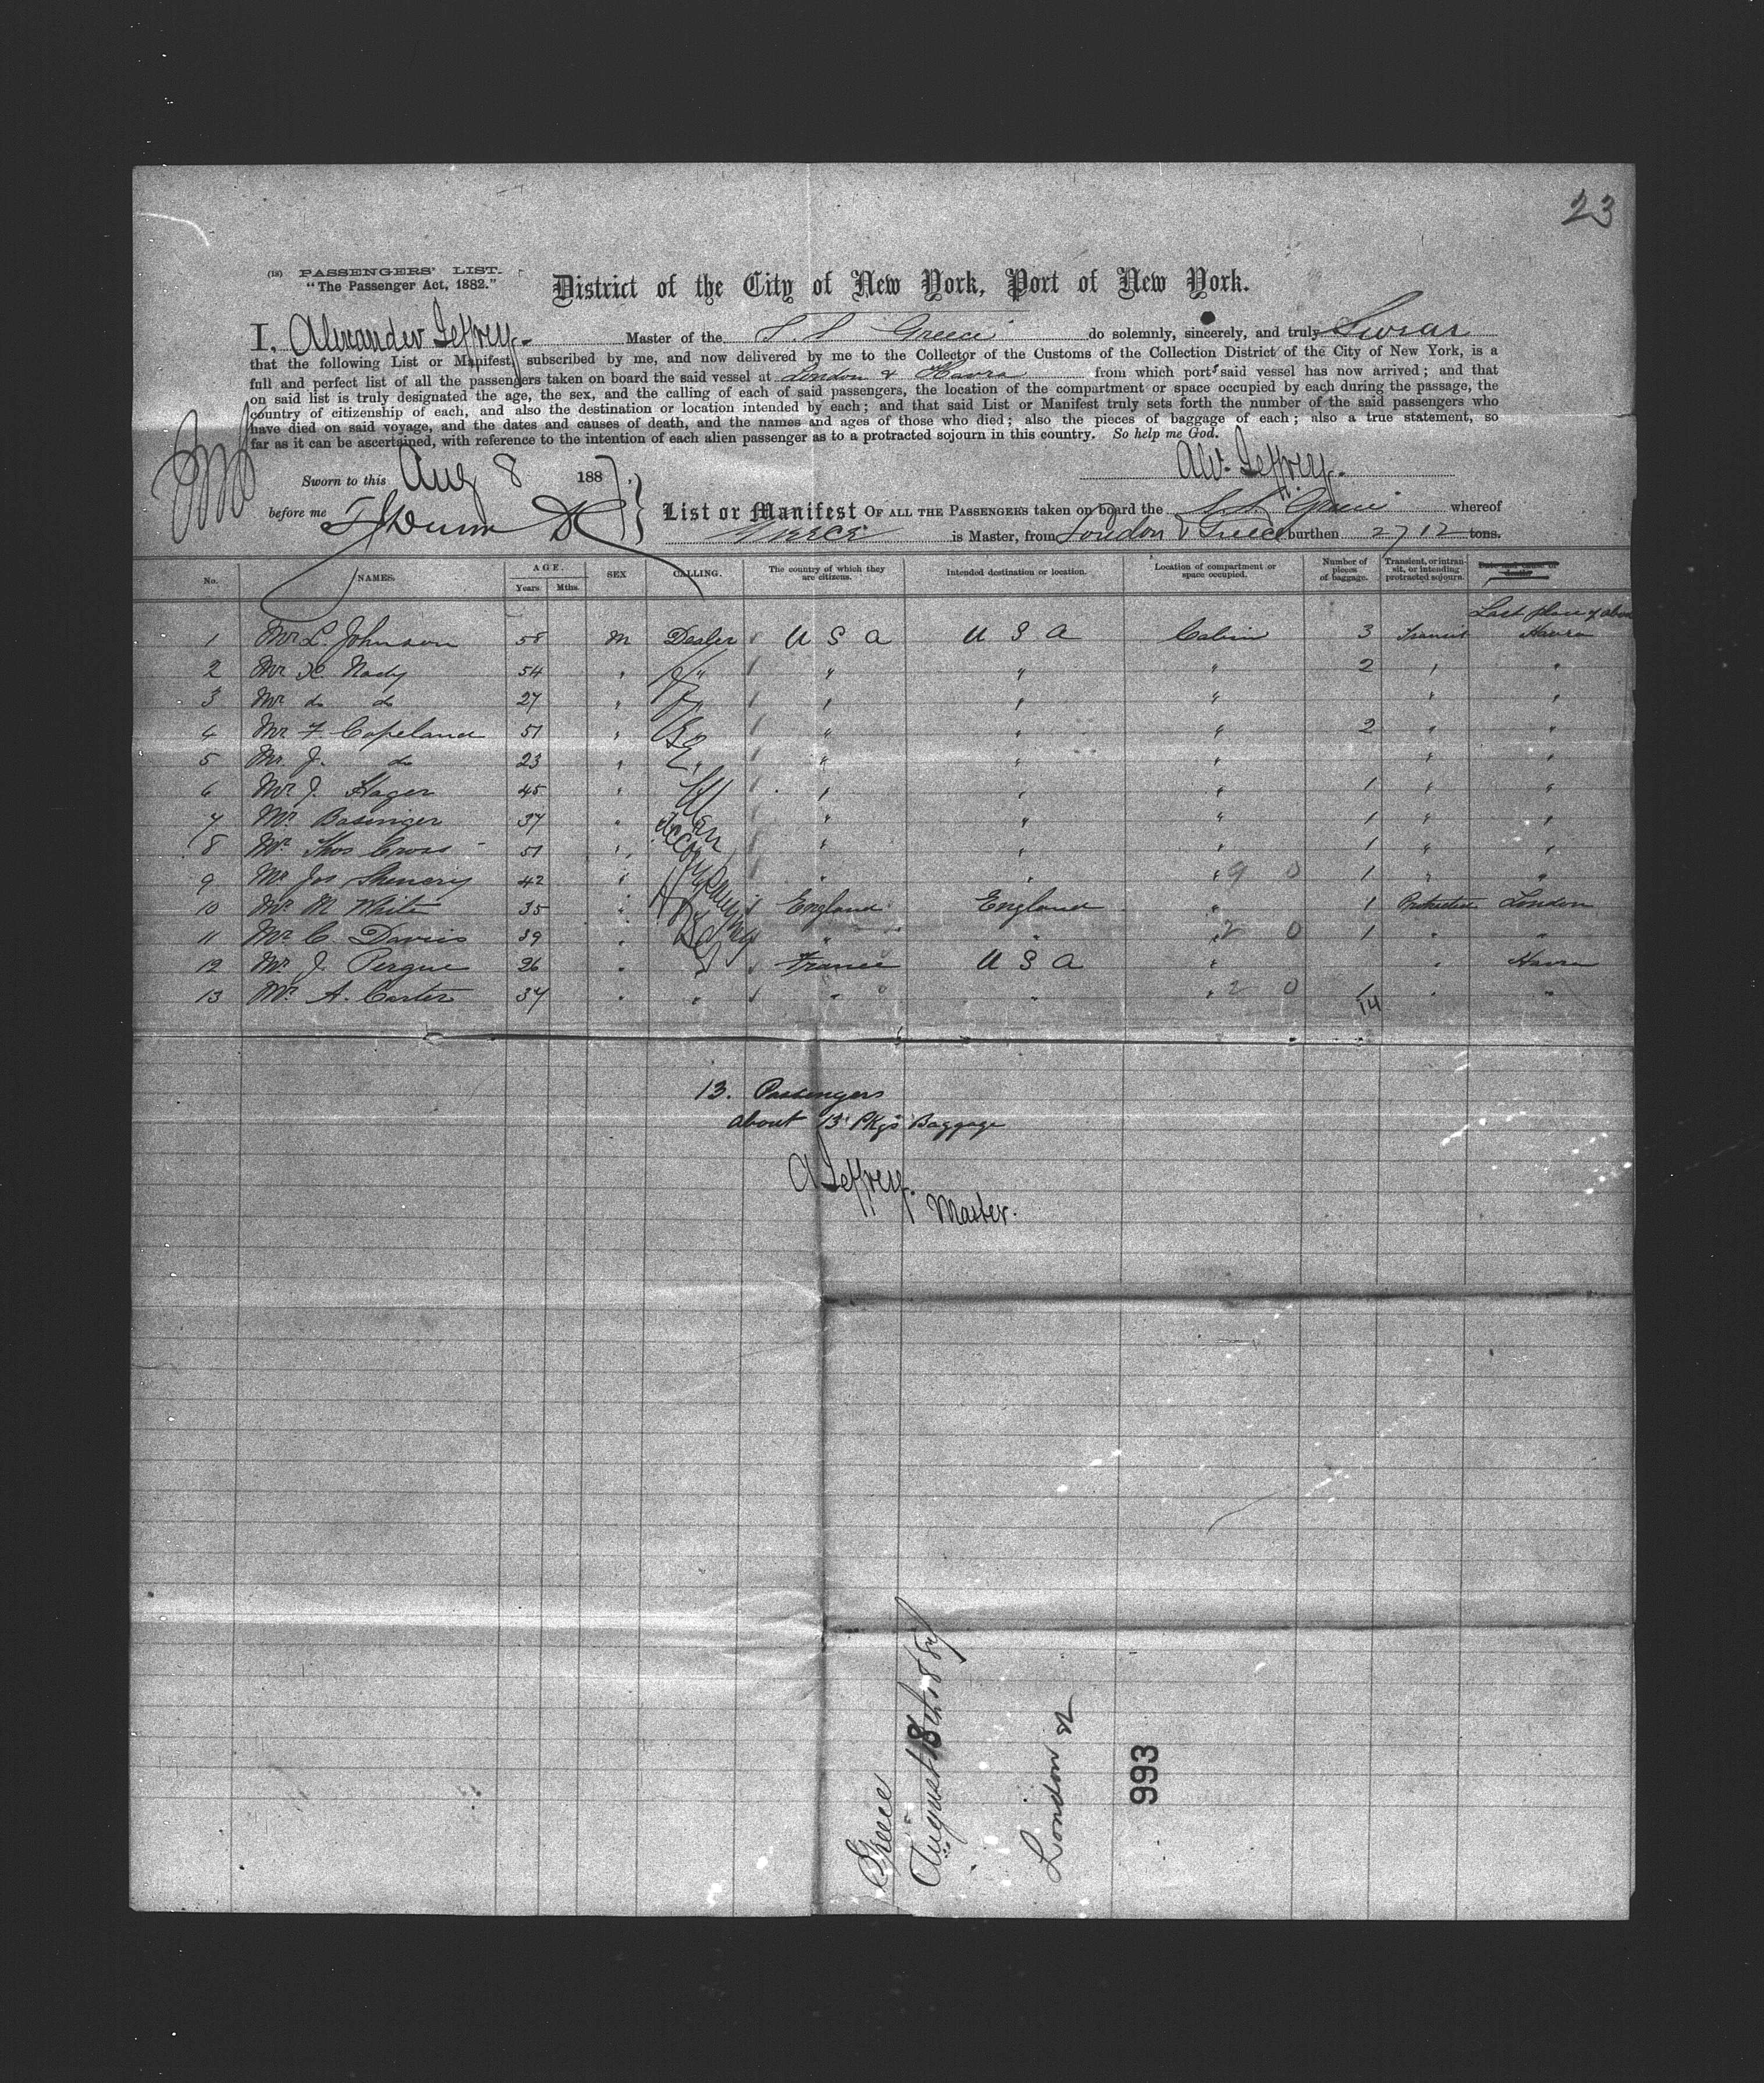 23
(18) PASSENGERS' LIST.
"The Passenger Act, 1882."
District of the City of New York, Port of New York.
I, Alexander Jeffrey. Master of the S. S Greece do solemnly, sincerely, and truly Swear
that the following List or Manifest, subscribed by me, and now delivered by me to the Collector of the Customs of the Collection District of the City of New York, is a
full and perfect list of all the passengers taken on board the said vessel at London & Havre from which ports said vessel has now arrived; and that
on said list is truly designated the age, the sex, and the calling of each of said passengers, the location of the compartment or space occupied by each during the passage, the
country of citizenship of each, and also the destination or location intended by each; and that said List or Manifest truly sets forth the number of the said passengers who
have died on said voyage, and the dates and causes of death, and the names and ages of those who died; also the pieces of baggage of each; also a true statement, so
far as it can be ascertained, with reference to the intention of each alien passenger as to a protracted sojourn in this country. So help me God.
Alex. Jeffrey.
Sworn to this Aug 8 1887.
before me Dunn
List or Manifest OF ALL THE PASSENGERS taken on board the S. S. Greece whereof
is Master, from London & Greece burthen 2712 tons.
No. NAMES. AGE. Years Mths. SEX CALLING. The country of which they are citizens. Intended destination or location. Location of compartment or space occupied. Number of pieces of baggage. Transient, or intransit, or intending protracted sojourn.
Last place of abode
1 Mr L. Johnson 58 M Dealer U S A U S A Cabin 3 Transit Havre
2 Mr H. Nady 54 " " " " " 2 " "
3 Mr do do 27 " " " " " " "
4 Mr F. Copeland 51 " " " " 2 " "
5 Mr J. do 23 " " " " " "
6 Mr J. Hager 45 " " " " 1 " "
7 Mr Basinger 37 " " " " 1 " "
8 Mr Thos Cross 51 " " " " 1 " "
9 Mr Jos Shenery 42 " " " " 9 0 1 " "
10 Mr M White 35 " England England " 1 London
11 Mr C. Davies 39 " " " " 2 0 1 " "
12 Mr J. Pergue 26 " France U S A " " Havre
13 Mr A. Carter 37 " " " " " 2 0 14 " "
13. Passengers
about 13 Pkgs Baggage
A Jeffrey.
Master.
Greece
August 8th 1887
London &
993